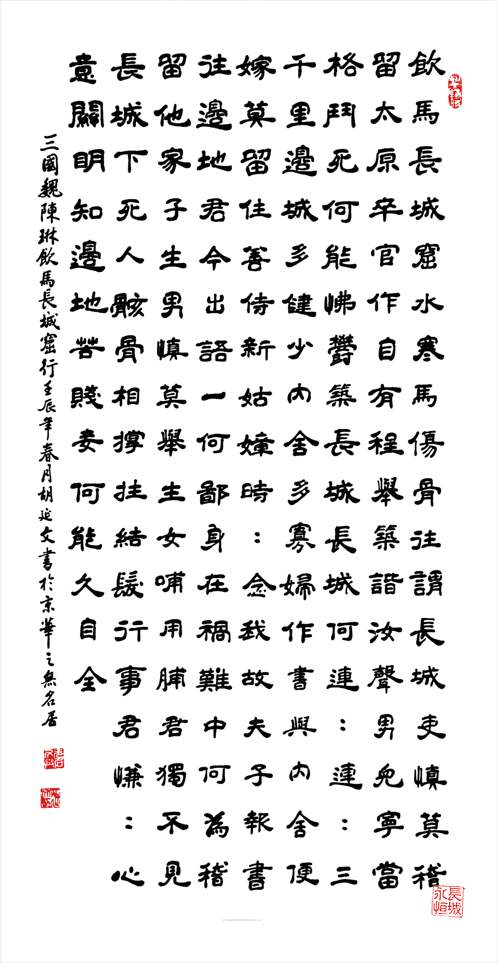 飲馬長城窟水寒馬傷骨往謂長城吏慎莫稽
留太原卒官作自有程舉築諧汝聲男兒寧當
格鬥死何能怫鬱築長城長城何連：連：三
千里邊城多健少內舍多寡婦作書與內舍便
嫁莫留住善侍新姑嫜時：念我故夫子報書
往邊地君今出語一何鄙身在禍難中何為稽
留他家子生男慎莫舉生女哺用脯君獨不見
長城下死人骸骨相撐拄結髮行事君慊：心
意關明知邊地苦賤妾何能久自全
三國魏陳琳飲馬長城窟行壬辰年春月胡延文書於京華之無名居
長城永恒